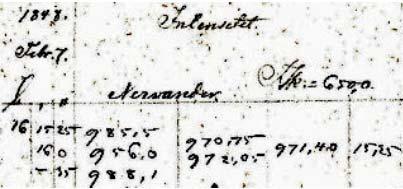 1848. Intensitet.
Febr. 7.
h , " Nervander. Tk. = 650,0
16 15 25 985,5 970,75 971,40 15,25
16 0 956,0 972,05
- 35 988,1